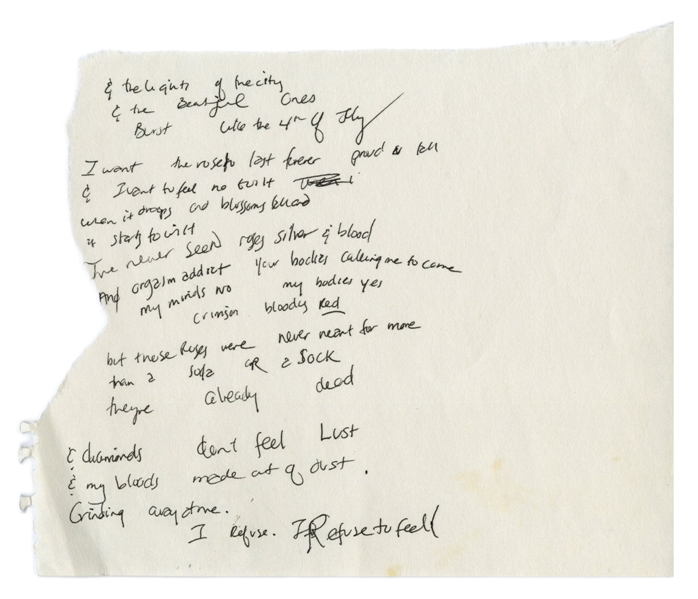 & the lights of the city
& the Beautiful Ones
Burst like the 4th of July
I want the rose to last forever proud & tall
& I want to feel no Guilt
when it droops and blossoms
& starts to wilt
I've never seen roses silver & blood
And orgasm addict your bodies calling me to come
my minds no my bodies yes
Crimson bloody Red
but these Roses were never meant for more
than a sofa OR a SOCK
theyre already dead
& diamonds dont feel Lust
& my bloods made out of dust.
Grinding away at me.
I Refuse. I Refuse to feel